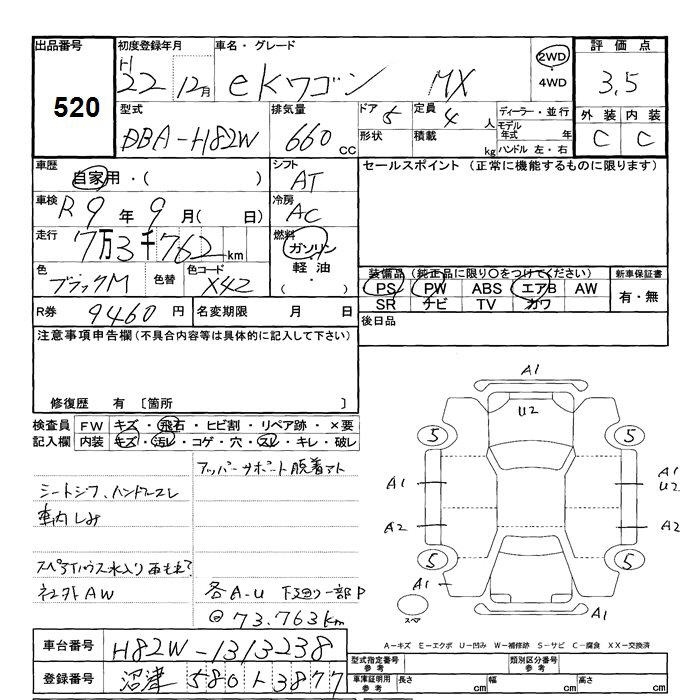 出品番号 初度登録年月 車名・グレード 2WD 評価点
520 H 22 12月 eKワゴン MX ・4WD 3.5
型式 排気量 ドア 5 定員 4 人 ディーラー・並行 外装 内装
DBA-H82W 660cc 形状 積載 kg モデル年式 年 C C
ハンドル 左・右
車歴 自家用・( ) シフト AT セールスポイント (正常に機能するものに限ります)
車検 R9年9月( 日) 冷房 AC
走行 7万3千762km 燃料 ガソリン
軽油
・( )
色 ブラックM 色替 色コード X42
装備品 (純正品に限り○をつけてください) 新車保証書
PS PW ABS エアB AW 有・無
SR ナビ TV カワ
R券 9460円 名変期限 月 日 後日品
注意事項申告欄(不具合内容等は具体的に記入して下さい)
修復歴 有 〔箇所 〕
検査員 FW キズ・飛石・ヒビ割・リペア跡・×要
記入欄 内装 キズ・汚レ・コゲ・穴・スレ・キレ・破レ
アッパーサポート脱着アト
シートシワ、ハンドルスレ
車内しみ
スペアハウス水入り
社外AW 各A-U 下回り一部P
@73.763km
A1
U2
5 5
A1 A1
U2
A2 A2
5 5
A1
スペア A1
A-キズ E-エクボ U-凹み W-補修跡 S-サビ C-腐食 XX-交換済
車台番号 H82W-1313238 型式指定番号 参考 類別区分番号 参考
登録番号 沼津 580 ト 3877 車庫証明用 参考 長さ cm 幅 cm 高さ cm